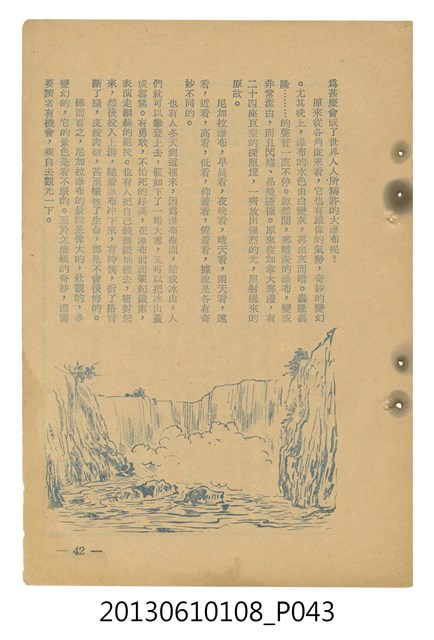 為甚麼會成了世界人人所稱許的大瀑布呢？
原來從各角度來看，它也有雄偉的氣勢，奇妙的變幻
。尤其晚上，瀑布的水色由白變灰，再由灰而暗。轟隆轟
隆………的聲音一直不停。忽然間，那暗淡的瀑布，變成
非常潔白，而且閃耀、晶瑩透徹。原來從加拿大那邊，有
二十四座巨型的探照燈，一齊放出強烈的光，照射過來的
原故。
尼加拉瀑布，早晨看，夜晚看，晴天看，雨天看，遠
看，近看，高看，低看，仰着看，俯着看，據說是各有奇
妙不同的。
也有人冬天到這裡來，因爲瀑布面，結成冰山，人
們就可以攀登上去，假如下了一場大雪，又可以把冰山蓋
成雪嶺。有勇敢，不怕死的好漢，在瀑布前面架起鐵索，
表演走鋼絲的絕技。也有人把自己裝進鐵桶裡去，密封起
來，然後投入上游，隨着瀑布冲下來，有時候，折了胳臂
斷了腿，皮綻肉硬，甚至犧牲了生命，都是不會後悔的。
總而言之，尼加拉瀑布的景致是偉大的，壯觀的，多
變幻的，它的景色是看不厭的。至於怎樣樣的奇妙，還需
要讀者有機會，親自去觀光一下。
— 42 —
20130610108_P043